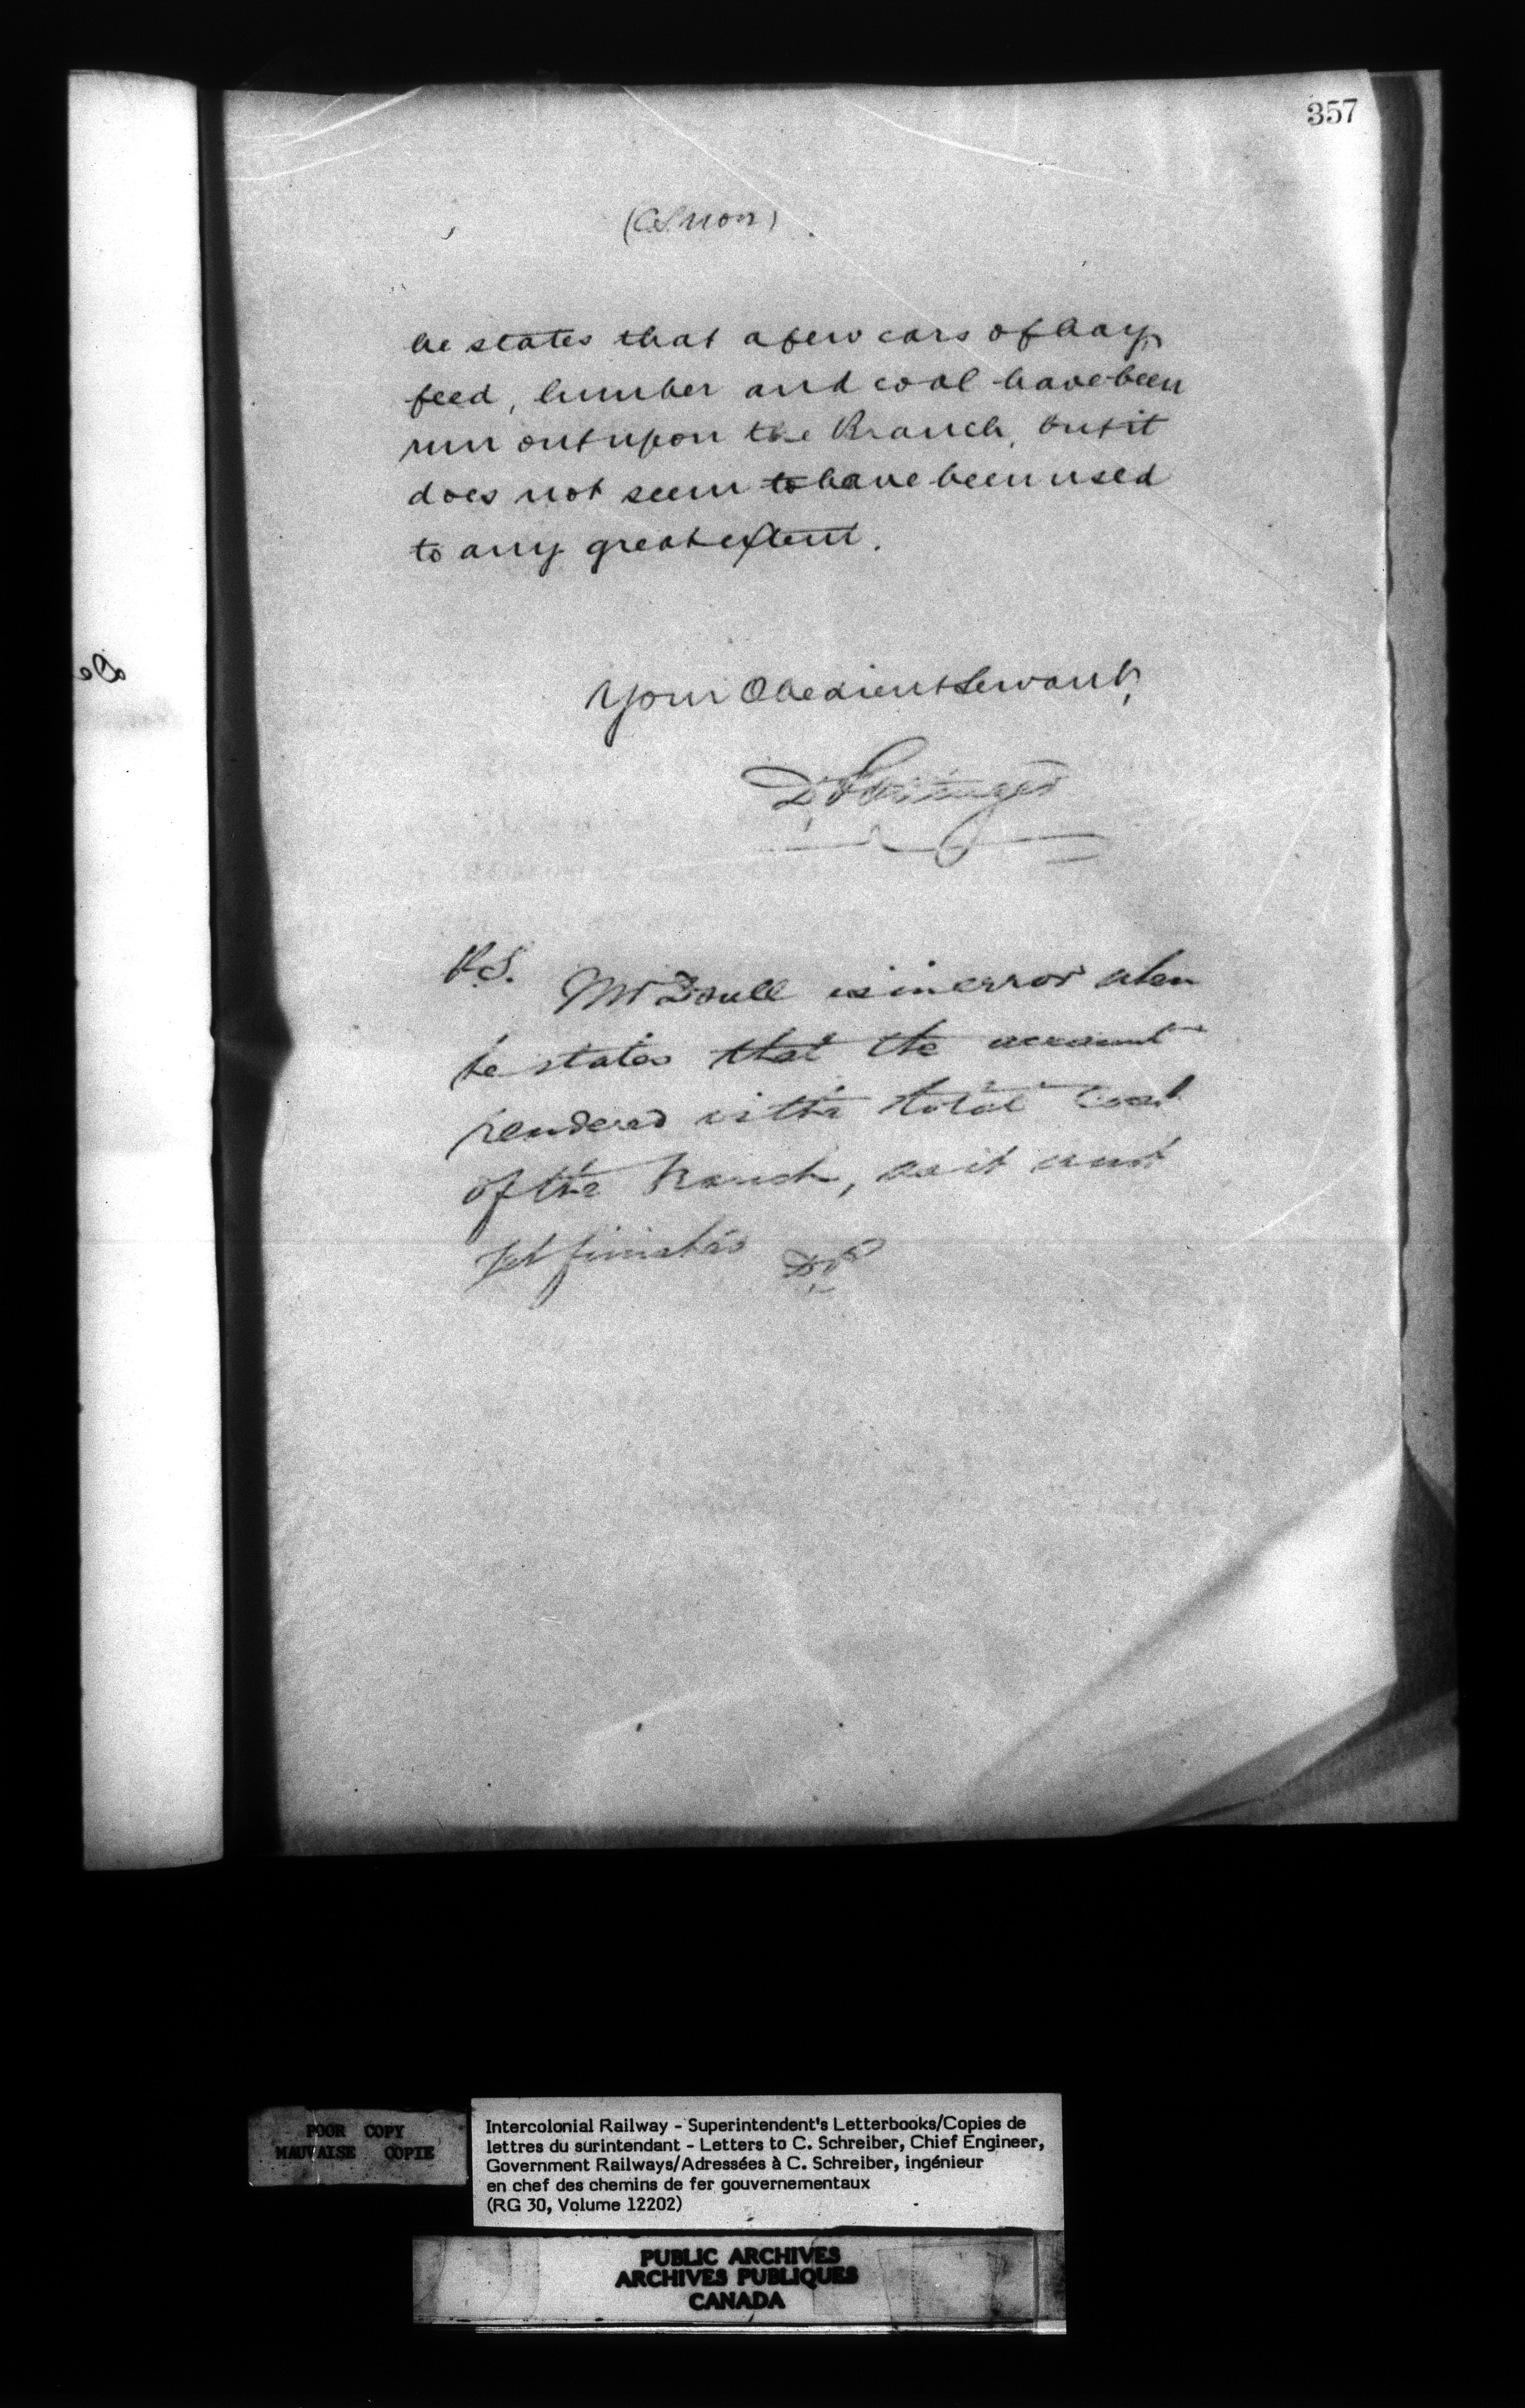 357
he states that a few cars of hay,
feed, lumber and coal have been
run out upon the Branch, but it
does not seem to have been used
to any great extent.
Your Obedient Servant,
D. Pottinger
P.S.
Mr Doull is in error when
he states that the account
rendered is the total cost
of the branch, as it is not
yet finished DP
POOR COPY
MAUVAISE COPIE
Intercolonial Railway - Superintendent's Letterbooks/Copies de
lettres du surintendant - Letters to C. Schreiber, Chief Engineer,
Government Railways/Adressées à C. Schreiber, ingénieur
en chef des chemins de fer gouvernementaux
(RG 30, Volume 12202)
PUBLIC ARCHIVES
ARCHIVES PUBLIQUES
CANADA